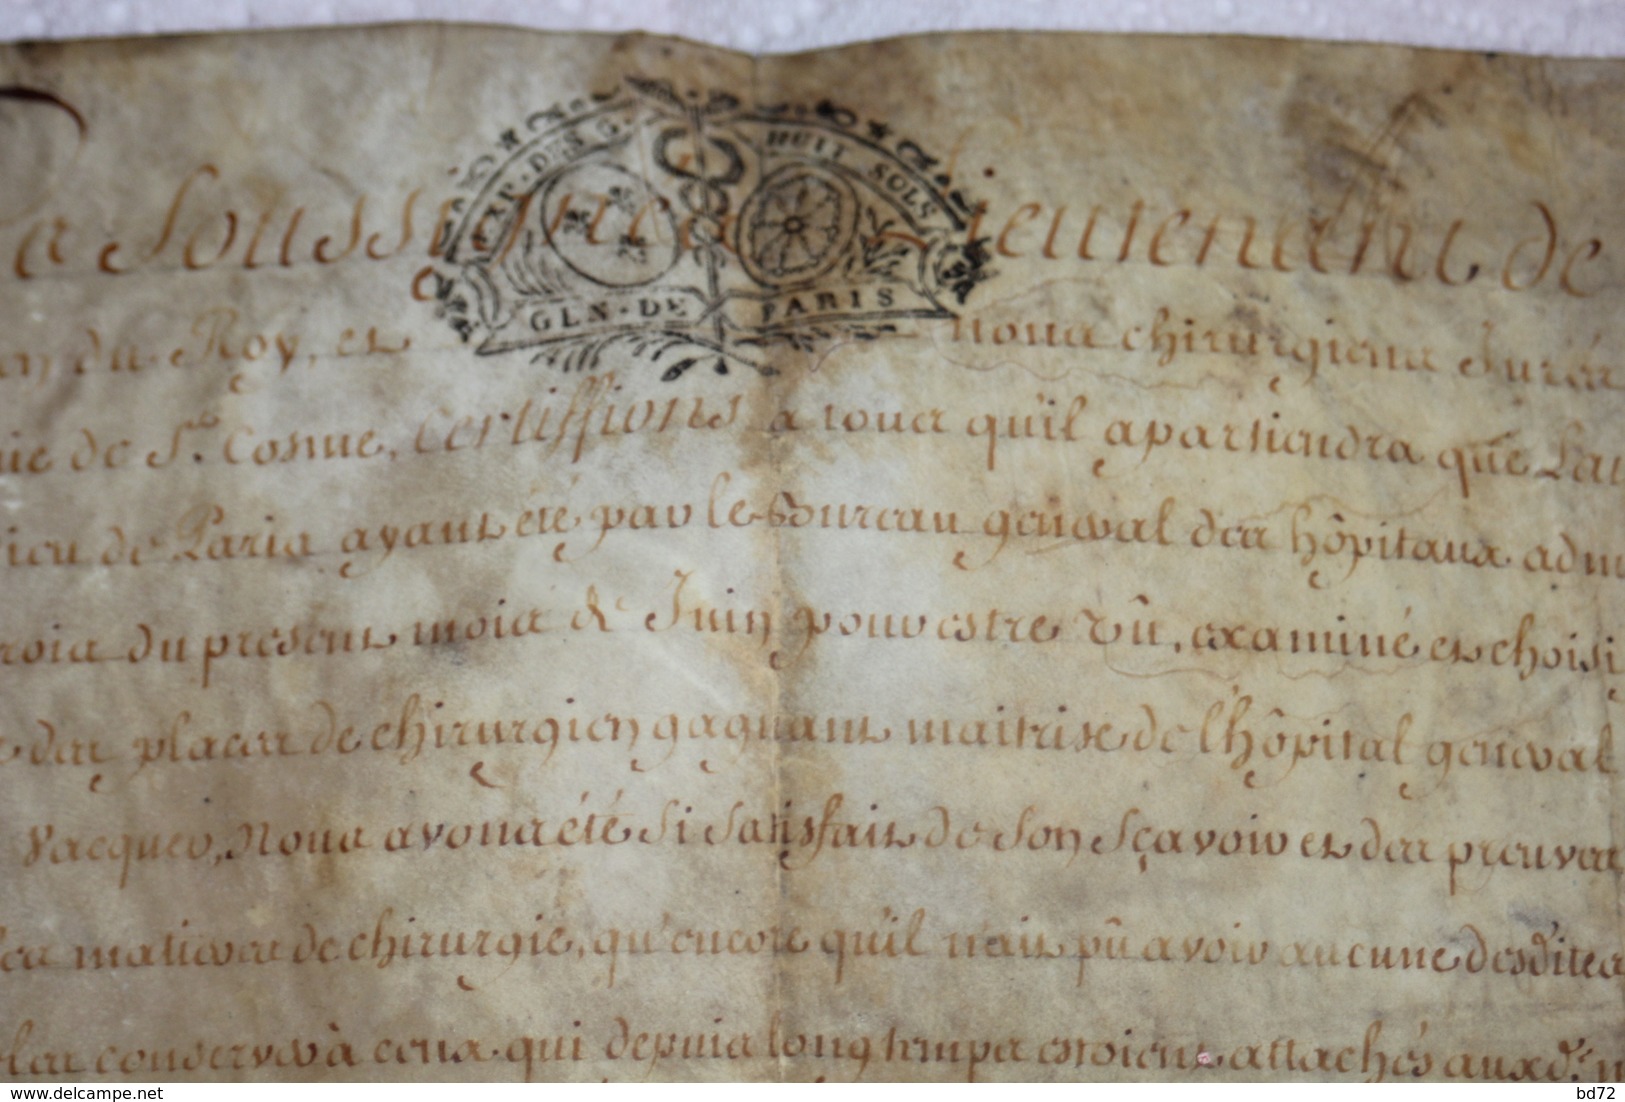 EXP. DES G. HUIT SOLS
GEN. DE PARIS
Soussignéz Lieutenant de
du Roy, et nous chirurgiens Jurés
de St. Cosme, certiffions à tous qu'il apartiendra que
de Paris ayant été par le Boureau general des hôpitaux
du present mois de Juin pour estre vû, examiné et choisi
des places de chirurgien gagnant maitrise de l'hôpital general
vacquer, Nous avons été si satisfait de son sçavoir et des preuves
matieres de chirurgie, qu'encore qu'il n'ait pû avoir aucune desdites
conserver à ceux qui depuis longtemps estoient attachés aux d.
delcampe.net
bd72